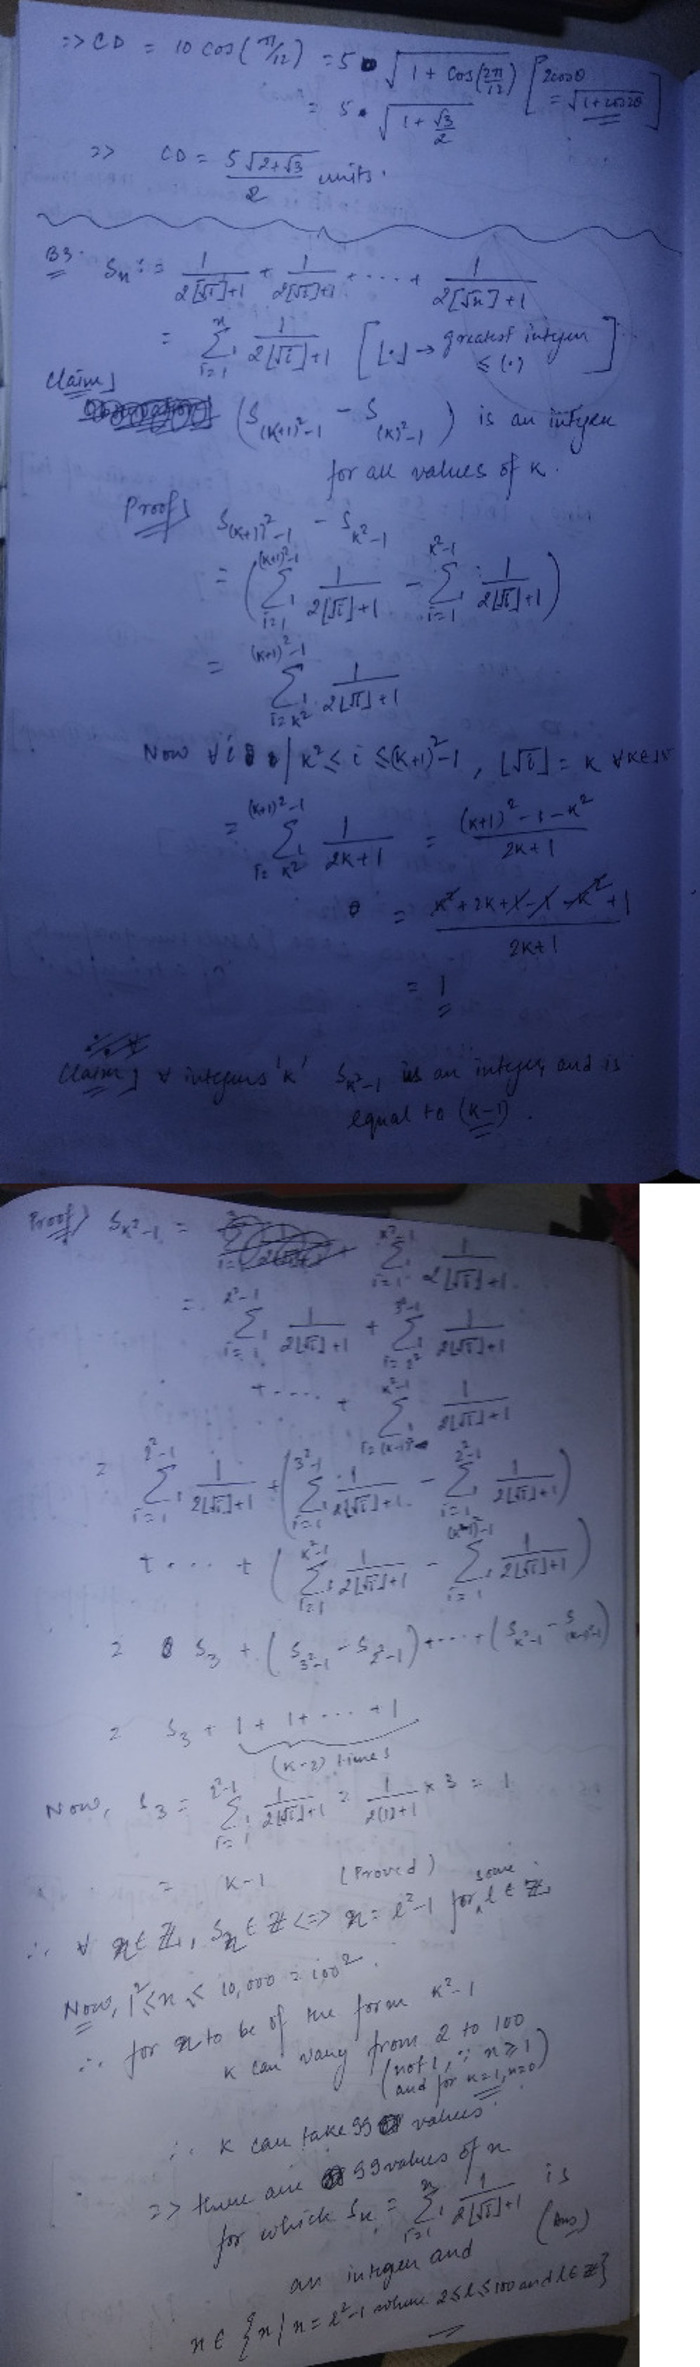 => CD = 10 cos(π/12) = 5 · √(1 + cos(2π/12)) [2cosθ = √(1+cos2θ)]
= 5 · √(1 + √3/2)
=> CD = 5√(2+√3)/2 units.
B3. Sₙ := 1/(2⌊√1⌋+1) + 1/(2⌊√2⌋+1) + .... + 1/(2⌊√n⌋+1)
= Σ_{i=1}^{n} 1/(2⌊√i⌋+1) [⌊·⌋ → greatest integer ≤ (·)]
Claim] (S_{(k+1)²-1} - S_{(k)²-1}) is an integer
for all values of k.
Proof} S_{(k+1)²-1} - S_{k²-1}
= (Σ_{i=1}^{(k+1)²-1} 1/(2⌊√i⌋+1) - Σ_{i=1}^{k²-1} 1/(2⌊√i⌋+1))
= Σ_{i=k²}^{(k+1)²-1} 1/(2⌊√i⌋+1)
Now ∀ i | k² ≤ i ≤ (k+1)²-1, ⌊√i⌋ = k ∀ k∈
= Σ_{i=k²}^{(k+1)²-1} 1/(2k+1) = ((k+1)² - 1 - k²)/(2k+1)
= (k² + 2k + 1 - 1 - k² + 1)/(2k+1)
= 1
Claim] ∀ integers 'k' S_{k²-1} is an integer, and is
equal to (k-1).
Proof} S_{k²-1} = Σ_{i=1}^{k²-1} 1/(2⌊√i⌋+1)
= Σ_{i=1}^{2²-1} 1/(2⌊√i⌋+1) + Σ_{i=2²}^{3²-1} 1/(2⌊√i⌋+1)
+ .... + Σ_{i=(k-1)²}^{k²-1} 1/(2⌊√i⌋+1)
= Σ_{i=1}^{2²-1} 1/(2⌊√i⌋+1) + (Σ_{i=1}^{3²-1} 1/(2⌊√i⌋+1) - Σ_{i=1}^{2²-1} 1/(2⌊√i⌋+1))
+ .... + (Σ_{i=1}^{k²-1} 1/(2⌊√i⌋+1) - Σ_{i=1}^{(k-1)²-1} 1/(2⌊√i⌋+1))
= S₃ + (S_{3²-1} - S_{2²-1}) + .... + (S_{k²-1} - S_{(k-1)²-1})
= S₃ + 1 + 1 + .... + 1
(k-2) times
Now, S₃ = Σ_{i=1}^{2²-1} 1/(2⌊√i⌋+1) = 1/(2(1)+1) × 3 = 1
= k-1 (Proved)
∴ ∀ n∈ℤ, Sₙ ∈ ℤ <=> n = l²-1 for some l ∈ ℤ
Now, 1² ≤ n ≤ 10,000 = 100².
∴ for n to be of the form k²-1
k can vary from 2 to 100
(not 1, ∵ n ≥ 1
and for k=1, n=0)
∴ k can take 99 values.
=> there are 99 values of n
for which Sₙ = Σ_{i=1}^{n} 1/(2⌊√i⌋+1) is
an integer and (Ans)
n ∈ {n | n = l²-1 where 2 ≤ l ≤ 100 and l ∈ ℤ}